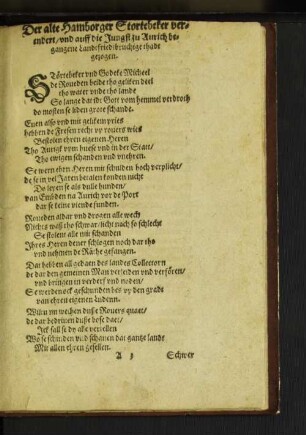 Der alte Hamborger Stortebeker ver-
endert, vnd auff die Jüngst zu Aurich be-
gangene Landtfriedbrüchige thadt
gezogen.
STörtebeker vnd Godeke Micheel
de Roueden beide tho geliken deel
tho water vnde tho lande
So lange dat idt Gott vom hemmel verdroth
do mosten se liden grote schande.
Euen also vnd mit gelikem pries
hebben de Fresen recht vp rouers wies
Bestolen ehren eigenen Heren
Tho Aurigk vym huese vnd in der Statt,
Tho ewigen schanden vnd vnehren.
Se wern ehren Heren mit schulden hoch verplicht,
de se in vel Jaren betalen kunden nicht
Do leyen se als dulle hunden,
van Embden na Aurich vor de Port
dar se seine viende funden.
Roueden aldar vnd drogen alle wech
Nichts waß tho schwar, licht noch so schlecht
Se stolent alle mit schanden
Ihres Heren dener schlogen noch dar tho
vnd nehmen de Räthe gefangen.
Dat hebben all gedaen des landes Collectorn
de dar den gemeinen Man
vnd
Se werden ock geschunden
van ehren eigenen Lüdenn.
Wilm mi weihen duße Rouers quaet/
de dar bedriuen duße bose daet/
Ick sall se dy alle vertellen
Wo se schinden vnd schauen dat gantze landt
Mit allen ehren gesellen.
A
Schwer